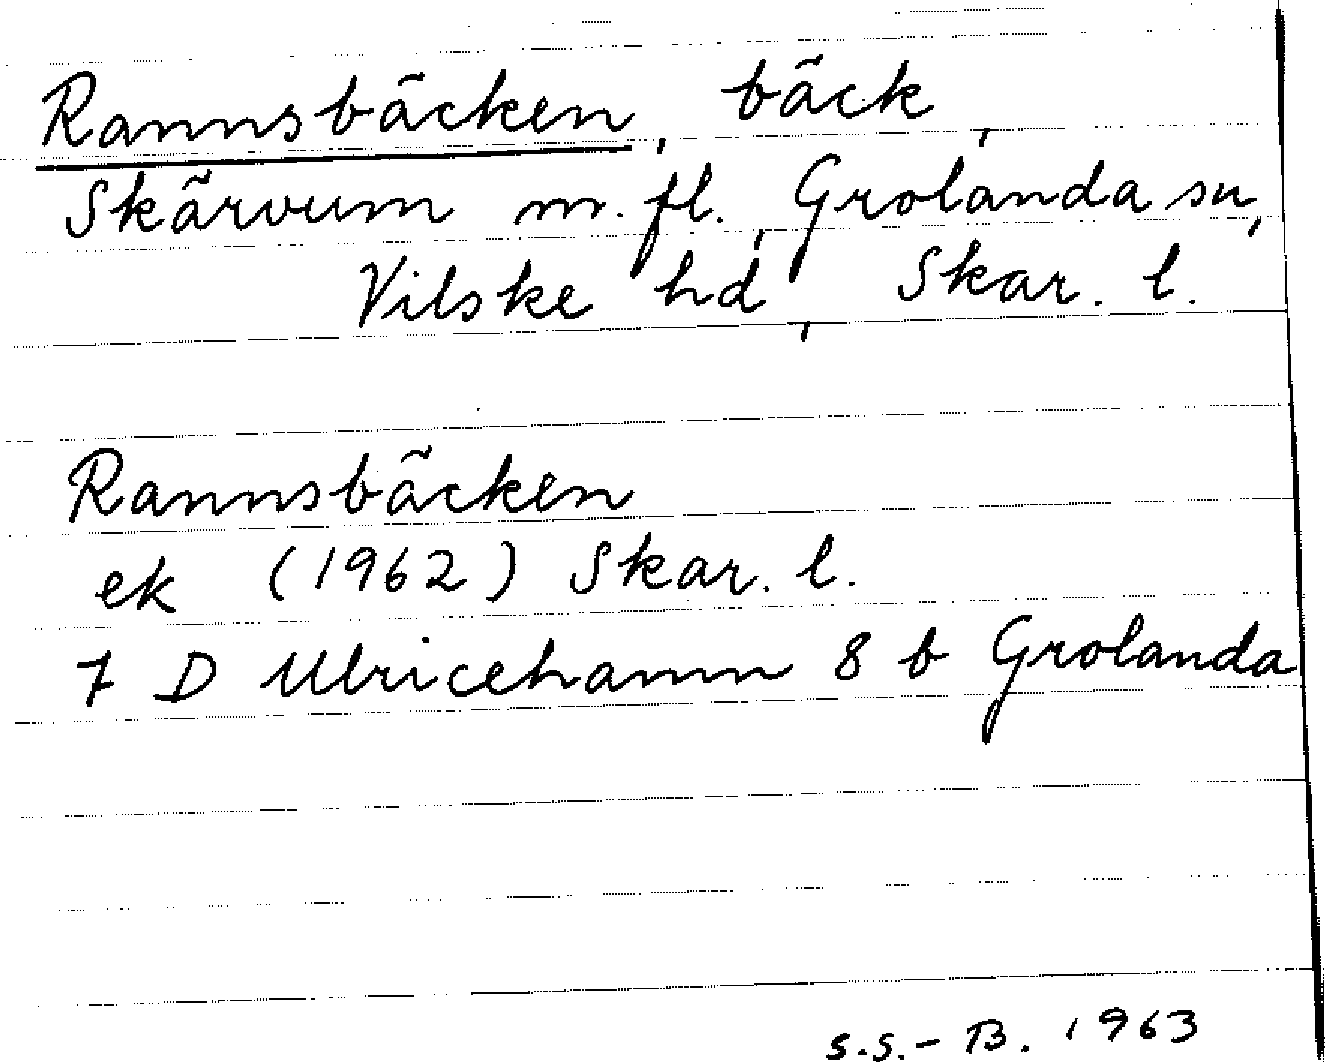 Rannsbäcken, bäck,
Skärvum m. fl., Grolanda sn,
Vilske hd, Skar. l.
Rannsbäcken
ek (1962) Skar. l.
7 D Ulricehamn 8 b Grolanda
S.S.-B. 1963